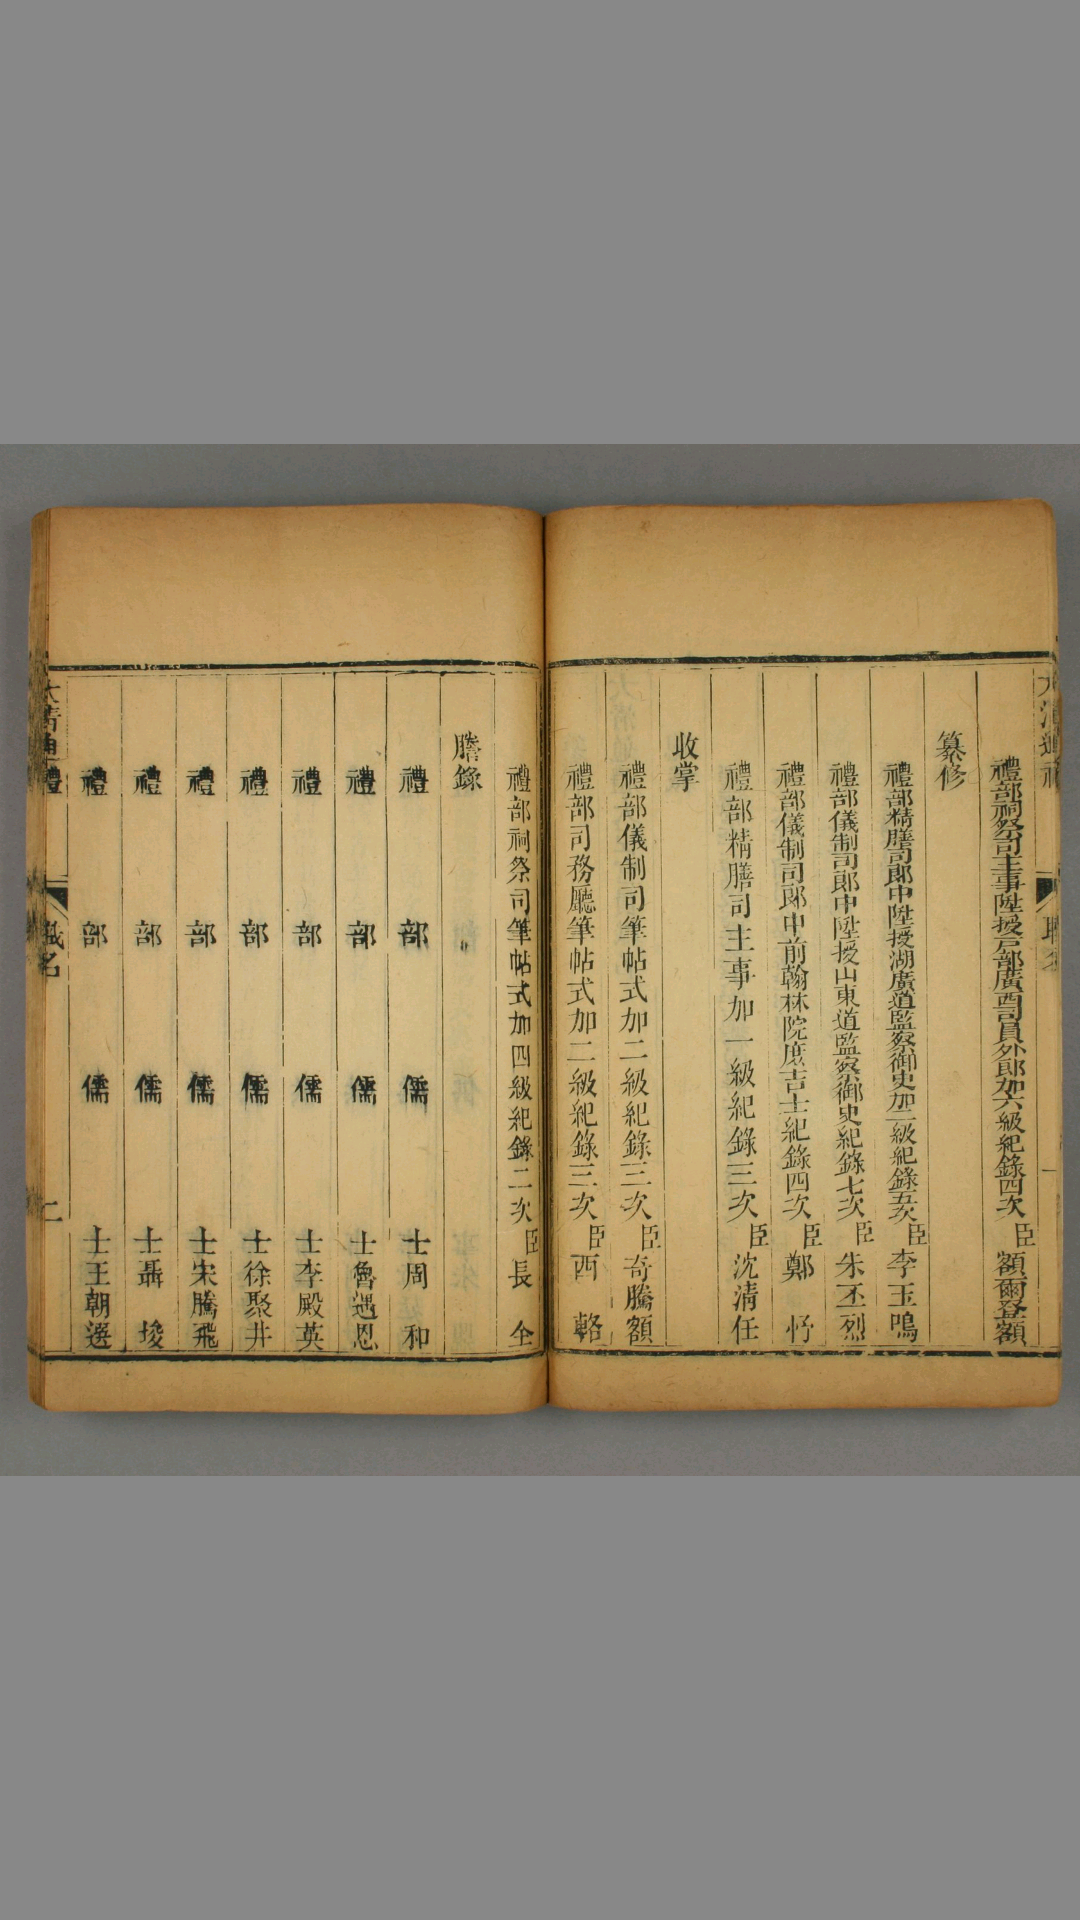 禮部祠祭司主事陞授戶部廣西司員外郎加六級紀錄四次臣額爾登額
纂修
禮部精膳司郎中陞授湖廣道監察御史加二級紀錄五次臣李玉鳴
禮部儀制司郎中陞授山東道監察御史紀錄七次臣朱丕烈
禮部儀制司郎中前翰林院庶吉士紀錄四次臣鄭忬
禮部精膳司主事加一級紀錄三次臣沈清任
收掌
禮部儀制司筆帖式加二級紀錄三次臣奇騰額
禮部司務廳筆帖式加二級紀錄三次臣西輅
禮部祠祭司筆帖式加四級紀錄二次臣長全
謄錄
禮部儒士周和
禮部儒士魯遇恩
禮部儒士李殿英
禮部儒士徐聚井
禮部儒士宋騰飛
禮部儒士聶授
禮部儒士王朝選
大清通禮 職名 二